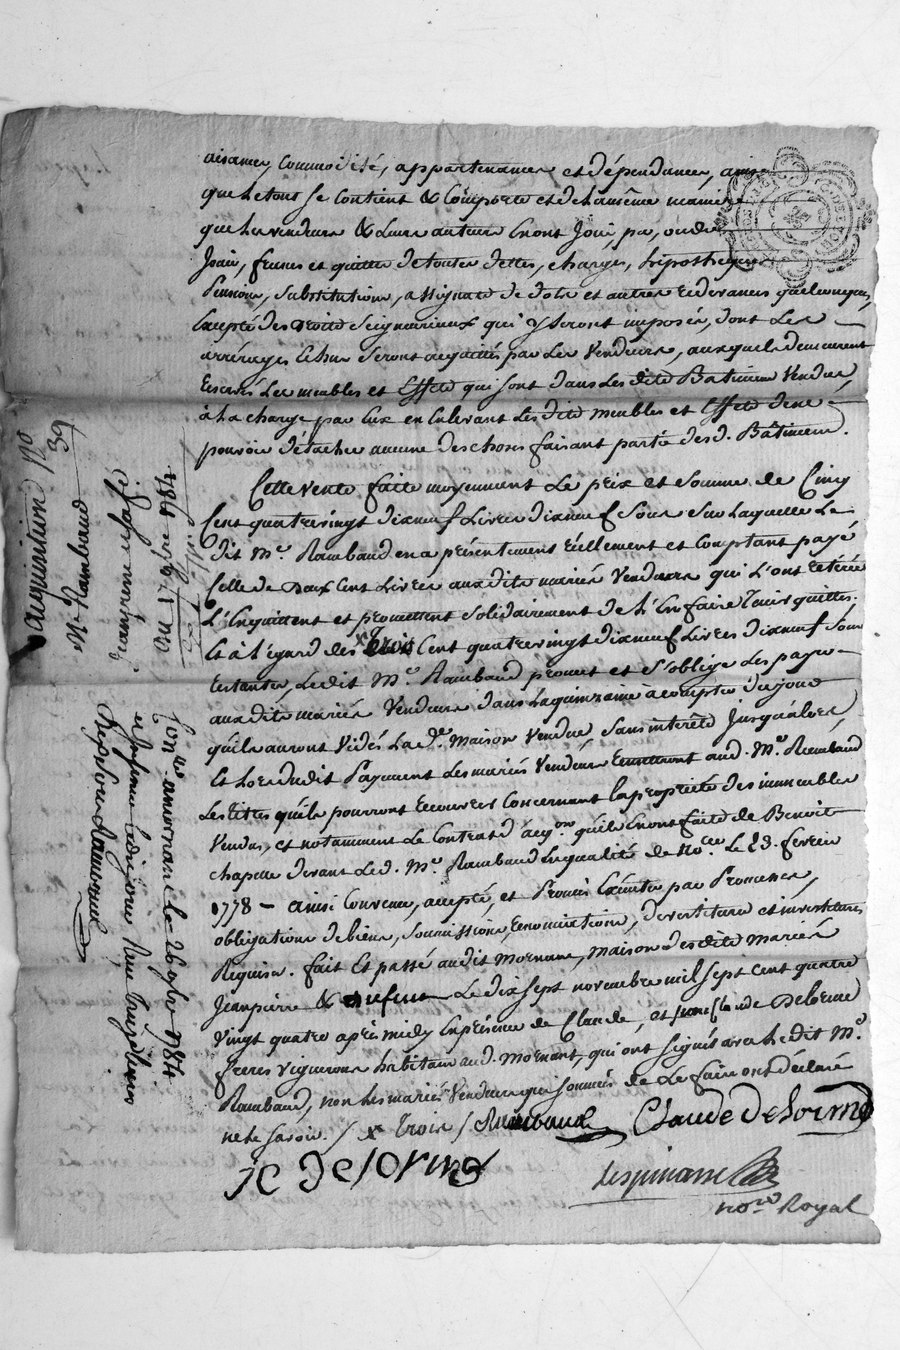 aisances, commodités, appartenances et dépendances, ainsi
que le tout se contient & comporte et de la même manière
que les vendeurs & leurs auteurs en ont Joui, pu, ou dû
Jouir, francs et quittes de toutes dettes, charges, hipotheques
Pensions, substitutions, assignats de dots et autres redevances quelconques,
Excepté des droits Seigneuriaux qui y seront imposés, dont les
arrérages échus seront acquités par les Vendeurs, auxquels demeurent
Réservés les meubles et Effets qui sont dans lesdits Batimens Vendus,
à la charge par Eux en Enlevant lesdits meubles et Effets de ne
pouvoir détacher aucune des choses faisant partie desd. Bâtimens.
Cette vente faite moyennant le prix et somme de Cinq
Cent quatrevingt dixneuf Livres dixneuf Sous Sur laquelle le
dit Me. Rambaud en a présentement réellement et comptant payé
Celle de Deux Cent Livres auxdits mariés Vendeurs qui l'ont retirée
L'En quittent et promettent solidairement de l'En faire tenir quitte.
Et à l'égard des x trois Cent quatrevingt dixneuf Livres dixneuf Sous
restantes, ledit Me. Rambaud promet et s'oblige les payer
auxdits mariés Vendeurs dans la quinzaine à compter du jour
qu'ils auront Vidés lade. Maison Vendue, Sans intérêts Jusqu'alors,
Et lors dudit Payement les mariés Vendeurs remettront aud. Me. Rambaud
les titres qu'ils pourront recouvrer concernant la propriété des immeubles
Vendus, et notamment le Contrat d'acqon. qu'ils En ont faite de Benoit
chapelle devant led. Me. Rambaud En qualité de Nore. le 23. fevrier
1778 - ainsi Convenu, accepté, et Promis Exécuter par Promesses,
obligations de biens, soumissions, renonciations, devestitures et investitures
Requises. fait Et passé audit mornant, maison desdits mariés
Jeanpierre & le dix sept novembre mil sept cent quatre
Vingt quatre après midy En présence de Claude, et Delorme
freres vignerons habitans aud. mornant, qui ont signés avec ledit Me.
Rambaud, non les mariés Vendeurs qui sommés de le faire ont déclaré
ne le savoir. / x trois / Rambaud Claude delorme
delorme
despinasse
nore Royal
acquisition No 39
Me. Rambaud
Jeanpierre
du 17 9bre 1784
Con. amornant le 26 9bre 1784